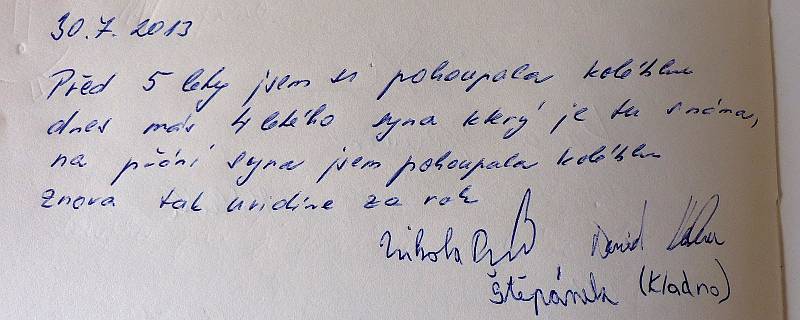 30.7. 2013
Před 5 lety jsem si pohoupala kolébku
dnes más 4 letého syna který je tu s náma,
na přání syna jsem pohoupala kolébku
znova tak uvidíme za rok
Nikola David
Štěpánek (Kladno)